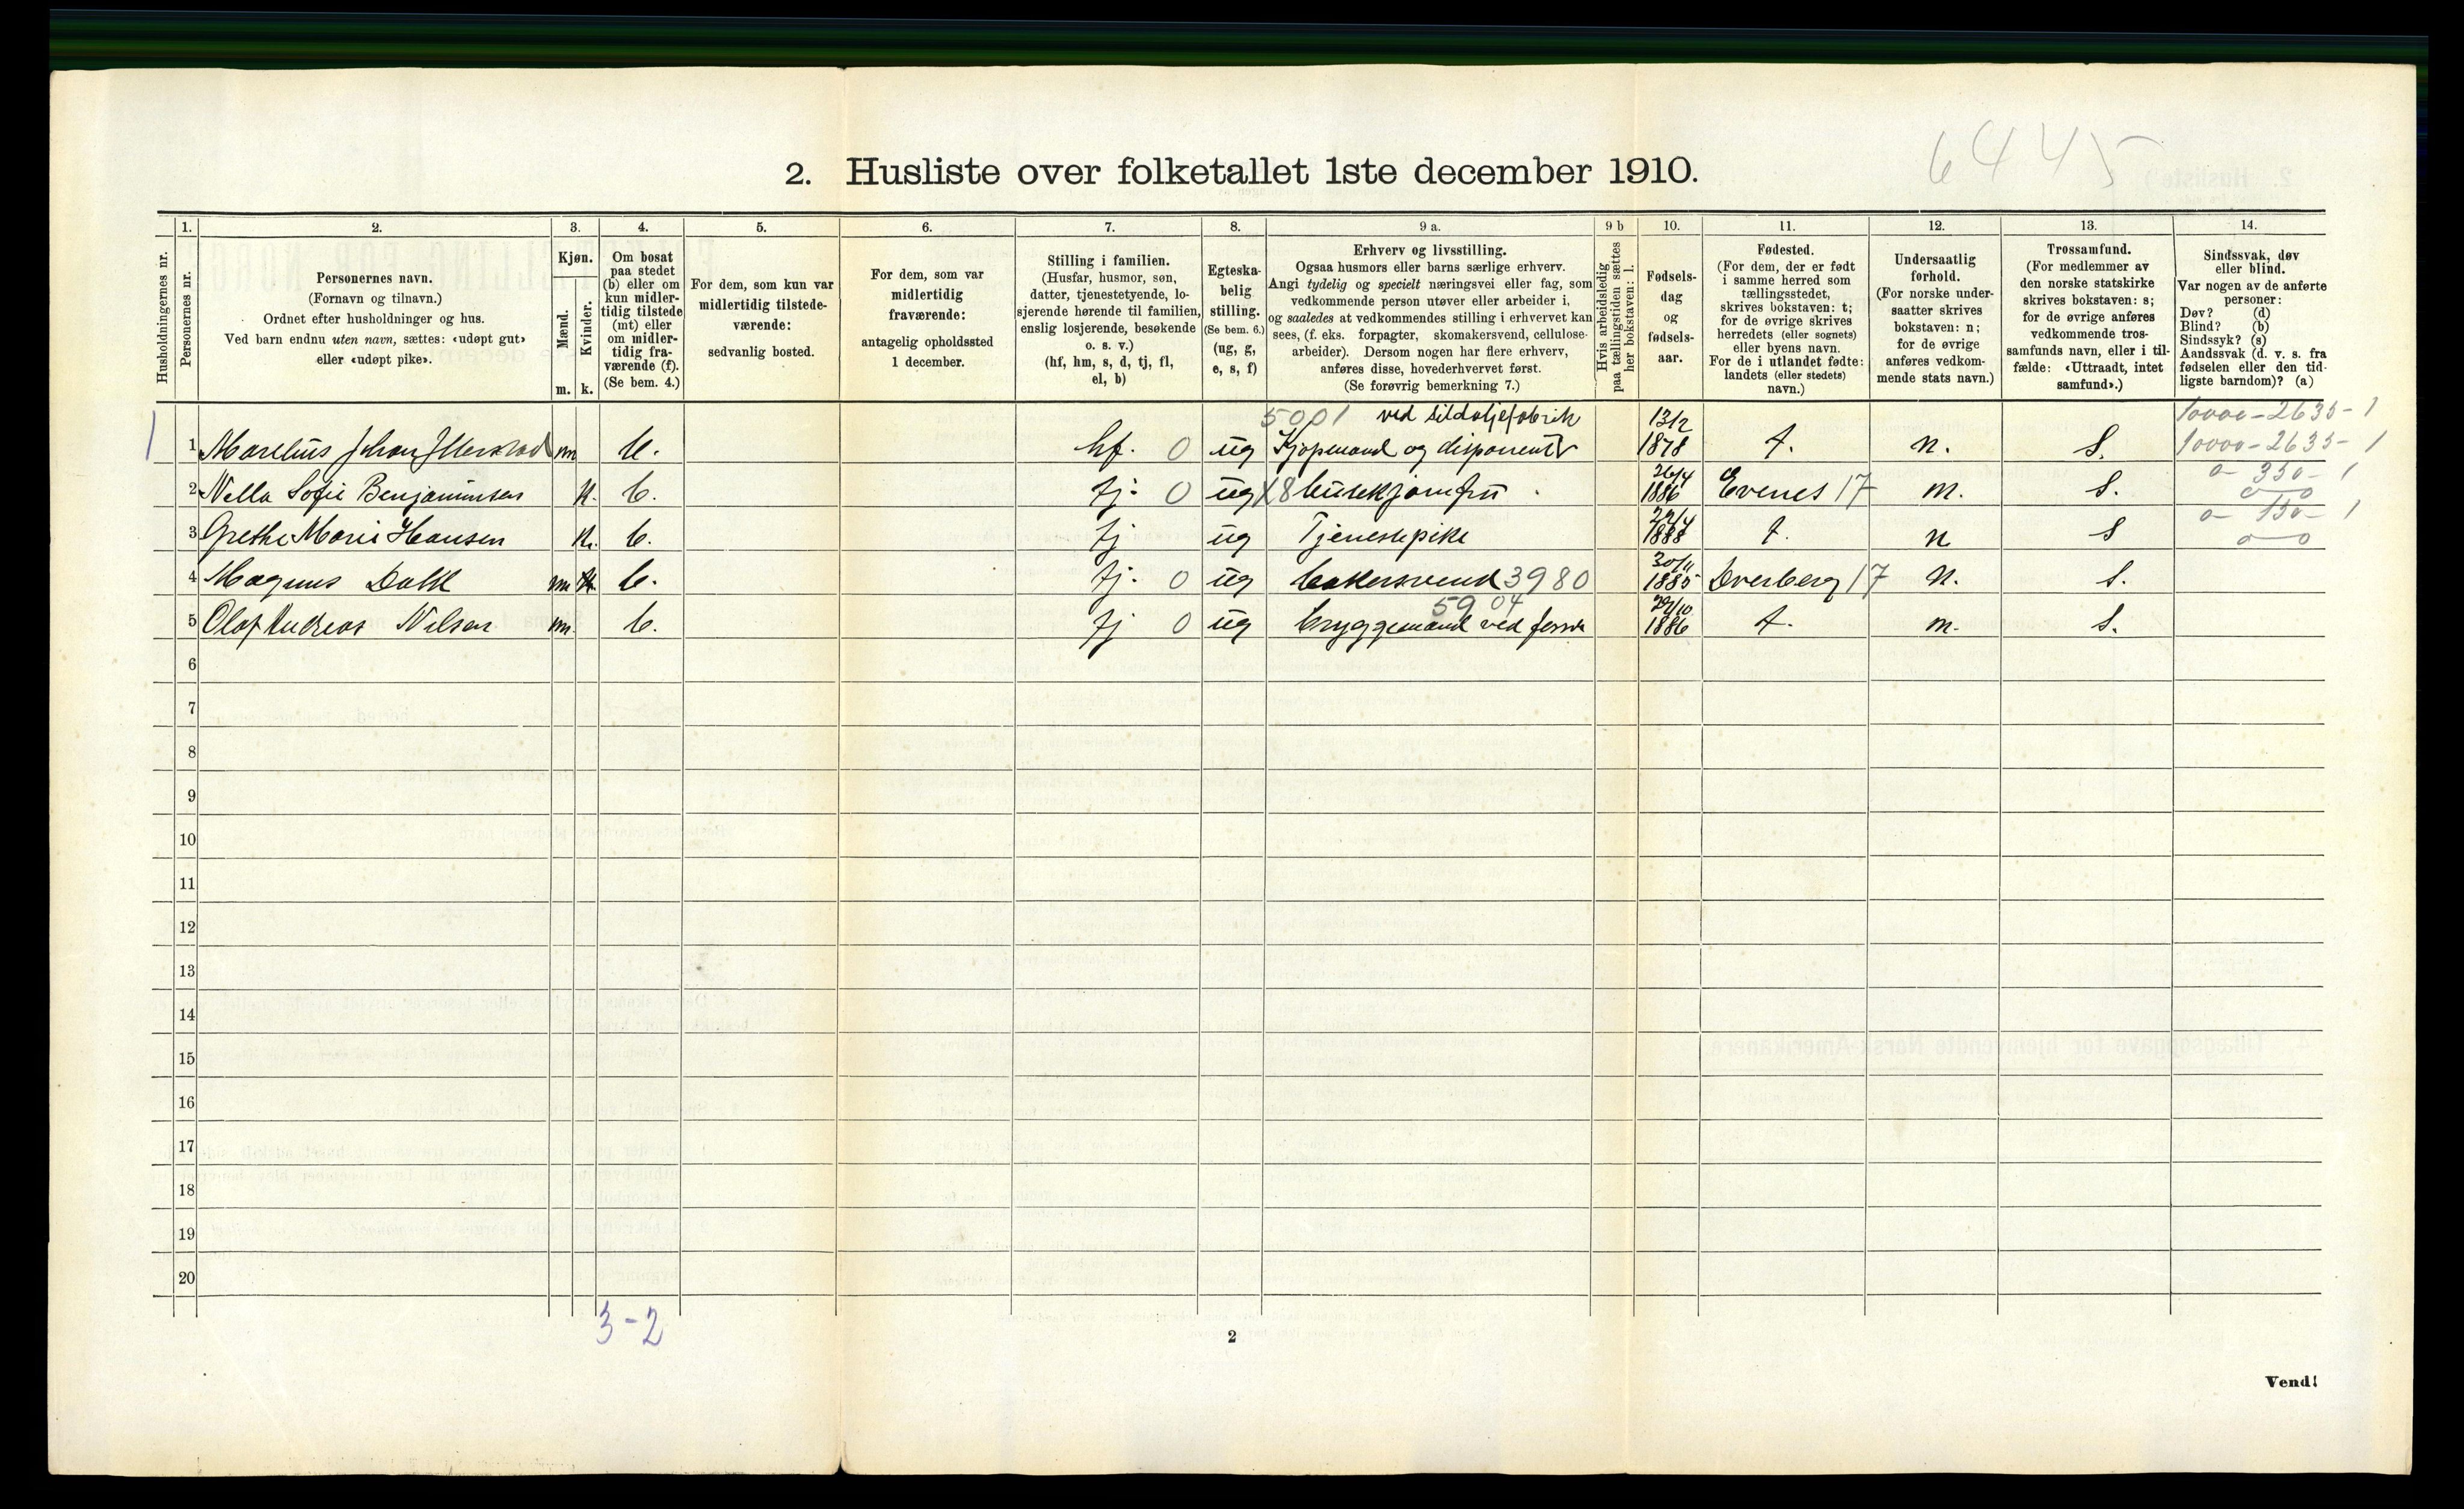 6445
2. Husliste over folketallet 1ste december 1910.
Husholdningernes nr.
1.
Personernes nr.
2.
Personernes navn.
(Fornavn og tilnavn.)
Ordnet efter husholdninger og hus.
Ved barn endnu uten navn, sættes: «udøpt gut»
eller «udøpt pike».
3.
Kjøn.
Mænd.
Kvinder.
m. k.
4.
Om bosat
paa stedet
(b) eller om
kun midler-
tidig tilstede
(mt) eller
om midler-
tidig fra-
værende (f).
(Se bem. 4.)
5.
For dem, som kun var
midlertidig tilstede-
værende:
sedvanlig bosted.
6.
For dem, som var
midlertidig
fraværende:
antagelig opholdssted
1 december.
7.
Stilling i familien.
(Husfar, husmor, søn,
datter, tjenestetyende, lo-
sjerende hørende til familien,
enslig losjerende, besøkende
o. s. v.)
(hf, hm, s, d, tj, fl,
el, b)
8.
Egteska-
belig
stilling.
(Se bem. 6.)
(ug, g,
e, s, f)
9 a.
Erhverv og livsstilling.
Ogsaa husmors eller barns særlige erhverv.
Angi tydelig og specielt næringsvei eller fag, som
vedkommende person utøver eller arbeider i,
og saaledes at vedkommendes stilling i erhvervet kan
sees, (f. eks. forpagter, skomakersvend, cellulose-
arbeider). Dersom nogen har flere erhverv,
anføres disse, hovederhvervet først.
(Se forøvrig bemerkning 7.)
9 b
Hvis arbeidsledig
paa tællingstiden sættes
her bokstaven: l.
10.
Fødsels-
dag
og
fødsels-
aar.
11.
Fødested.
(For dem, der er født
i samme herred som
tællingsstedet,
skrives bokstaven: t;
for de øvrige skrives
herredets (eller sognets)
eller byens navn.
For de i utlandet fødte:
landets (eller stedets)
navn.)
12.
Undersaatlig
forhold.
(For norske under-
saatter skrives
bokstaven: n;
for de øvrige
anføres vedkom-
mende stats navn.)
13.
Trossamfund.
(For medlemmer av
den norske statskirke
skrives bokstaven: s;
for de øvrige anføres
vedkommende tros-
samfunds navn, eller i til-
fælde: «Uttraadt, intet
samfund».)
14.
Sindssvak, døv
eller blind.
Var nogen av de anførte
personer:
Døv? (d)
Blind? (b)
Sindssyk? (s)
Aandssvak (d. v. s. fra
fødselen eller den tid-
ligste barndom)? (a)
5001 ved sildoljefabrik 13/2 10000-2635-1
1 1 Marelius Johan m b. hf. 0 ug Kjøpmand og disponent 1878 t. n. S. 10000-2635-1
26/4 0- 350- 1
2 Nella Sofie Benjaminsen k. b. tj. 0 ug butikjomfru 1886 Evenes 17 n. S. 0 0
0- 150- 1
3 Grethe Marie Hansen k. b. tj ug Tjenestepike 1888 t. n S 0 0
30/11
4 Magnus Dahl m b. tj. 0 ug bakersvend 3980 1885 Dverberg 17 n. S.
5904 29/10
5 Olaf Andreas Nilsen m. b. tj 0 ug bryggemand ved 1886 t. n. S.
6
7
8
9
10
11
12
13
14
15
16
17
18
19
20
3-2
2
Vend!